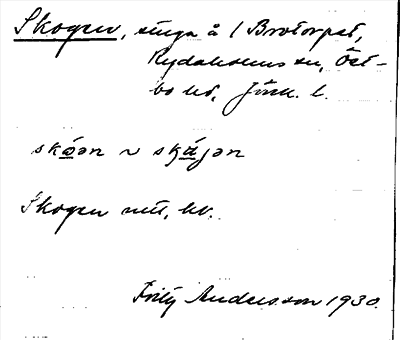 Skogen, stuga å / Brotorpet,
Rydaholms sn, Öst-
bo hd, Jönk. l.
skọən ~ skájən
Skogen utt., hv.
Fritz Andersson 1930.